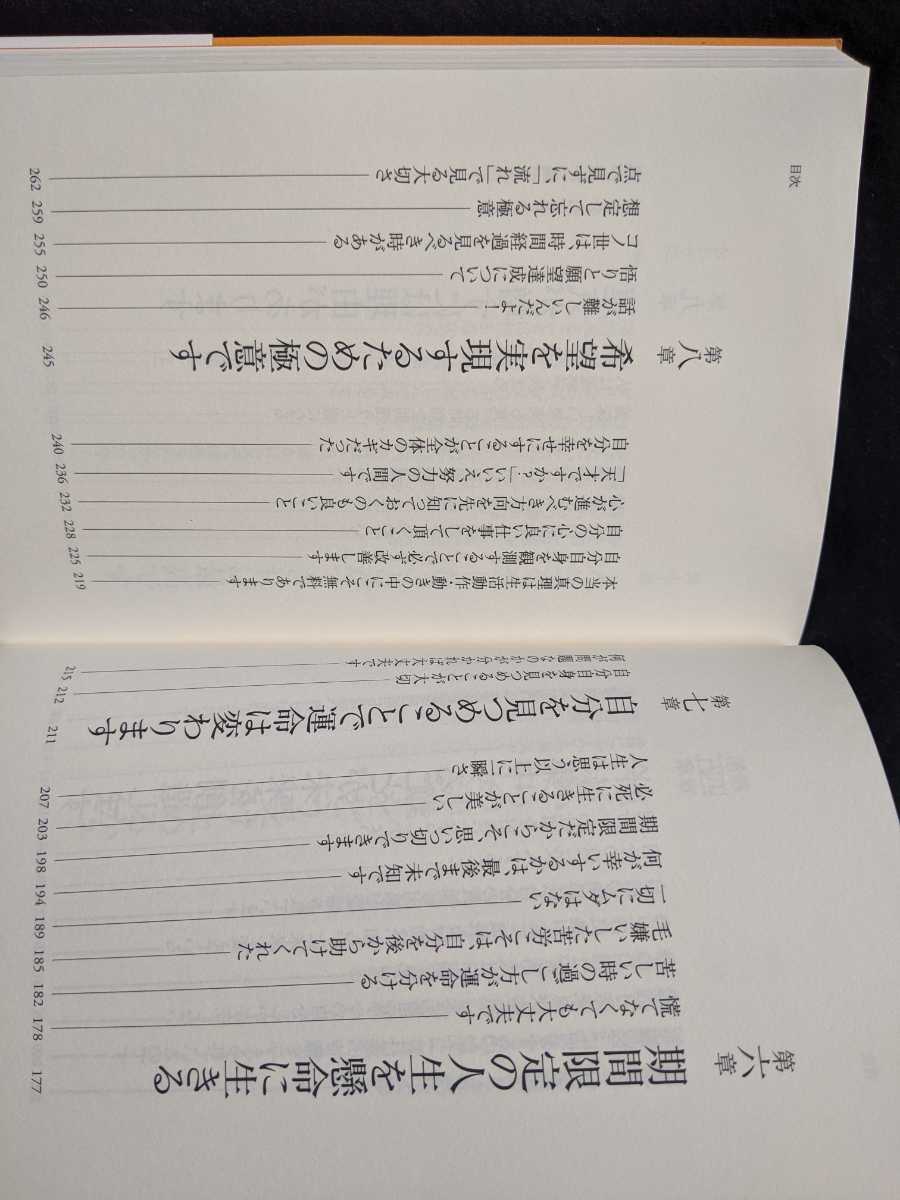 第六章 期間限定の人生を懸命に生きる 177
慌てなくても大丈夫です 178
苦しい時の過ごし方が運命を分ける 182
毛嫌いした苦労こそは、自分を後から助けてくれた 185
一切にムダはない 189
何が幸いするかは、最後まで未知です 194
期間限定だからこそ、思いっ切りできます 198
必死に生きることが美しい 203
人生は思う以上に一瞬さ 207
第七章 自分を見つめることで運命は変わります 211
自分自身を見つめることが大切 212
何が問題なのかが分かれば大丈夫です 215
本当の真理は生活動作・動きの中にこそ無料であります 219
自分自身を観測することで必ず改善します 225
自分の心に良い仕事をして頂くこと 228
心が進むべき方向を先に知っておくのも良いこと 232
「天才ですか?」いいえ、努力の人間です 236
自分を幸せにすることが全体のカギだった 240
第八章 希望を実現するための極意です 245
話が難しいんだよー 246
悟りと願望達成について 250
コノ世は、時間経過を見るべき時がある 255
想定して忘れる極意 259
点で見ずに、「流れ」で見る大切さ 262
目次